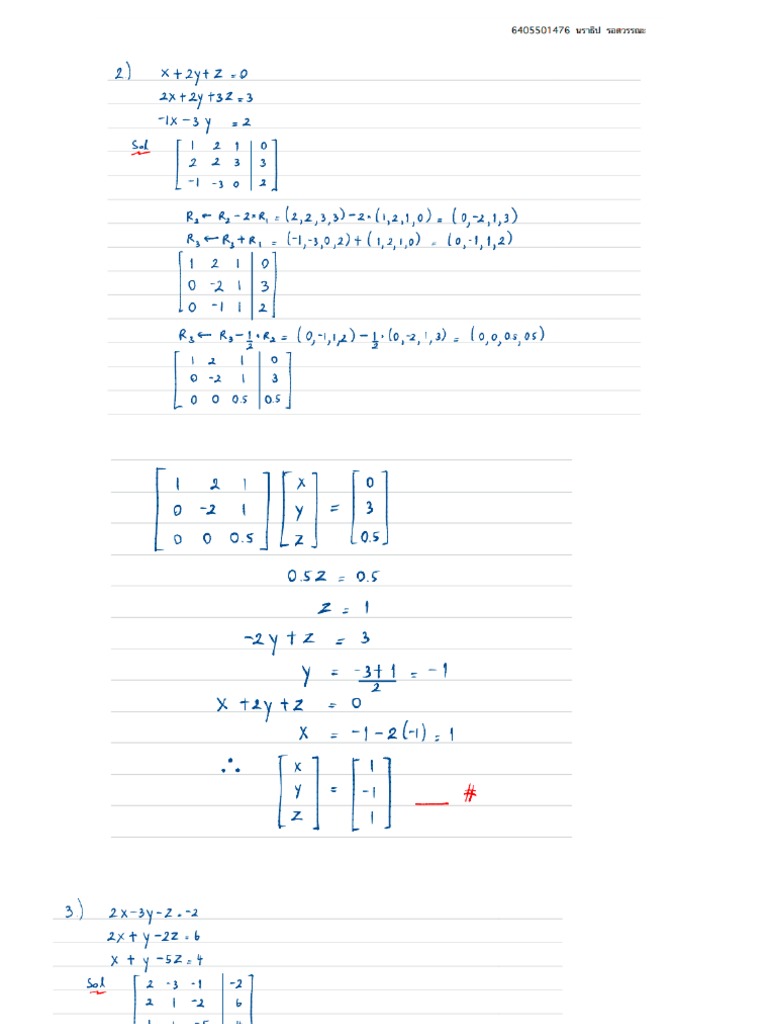 6405501476 นราธิป รอสวรรณะ
2) x+2y+z=0
2x+2y+3z=3
-1x-3y =2
Sol [ 1 2 1 | 0 ]
[ 2 2 3 | 3 ]
[ -1 -3 0 | 2 ]
R₂ ← R₂-2*R₁ = (2,2,3,3)-2*(1,2,1,0) = (0,-2,1,3)
R₃ ← R₃+R₁ = (-1,-3,0,2)+(1,2,1,0) = (0,-1,1,2)
[ 1 2 1 | 0 ]
[ 0 -2 1 | 3 ]
[ 0 -1 1 | 2 ]
R₃ ← R₃-1/2*R₂ = (0,-1,1,2)-1/2*(0,-2,1,3) = (0,0,0.5,0.5)
[ 1 2 1 | 0 ]
[ 0 -2 1 | 3 ]
[ 0 0 0.5 | 0.5 ]
[ 1 2 1 ] [ x ] [ 0 ]
[ 0 -2 1 ] [ y ] = [ 3 ]
[ 0 0 0.5 ] [ z ] [ 0.5 ]
0.5z = 0.5
z = 1
-2y+z = 3
y = -3+1/2 = -1
x+2y+z = 0
x = -1-2(-1) = 1
∴ [ x ] [ 1 ]
[ y ] = [ -1 ] #
[ z ] [ 1 ]
3) 2x-3y-z=-2
2x+y-2z=6
x+y-5z=4
Sol [ 2 -3 -1 | -2 ]
[ 2 1 -2 | 6 ]